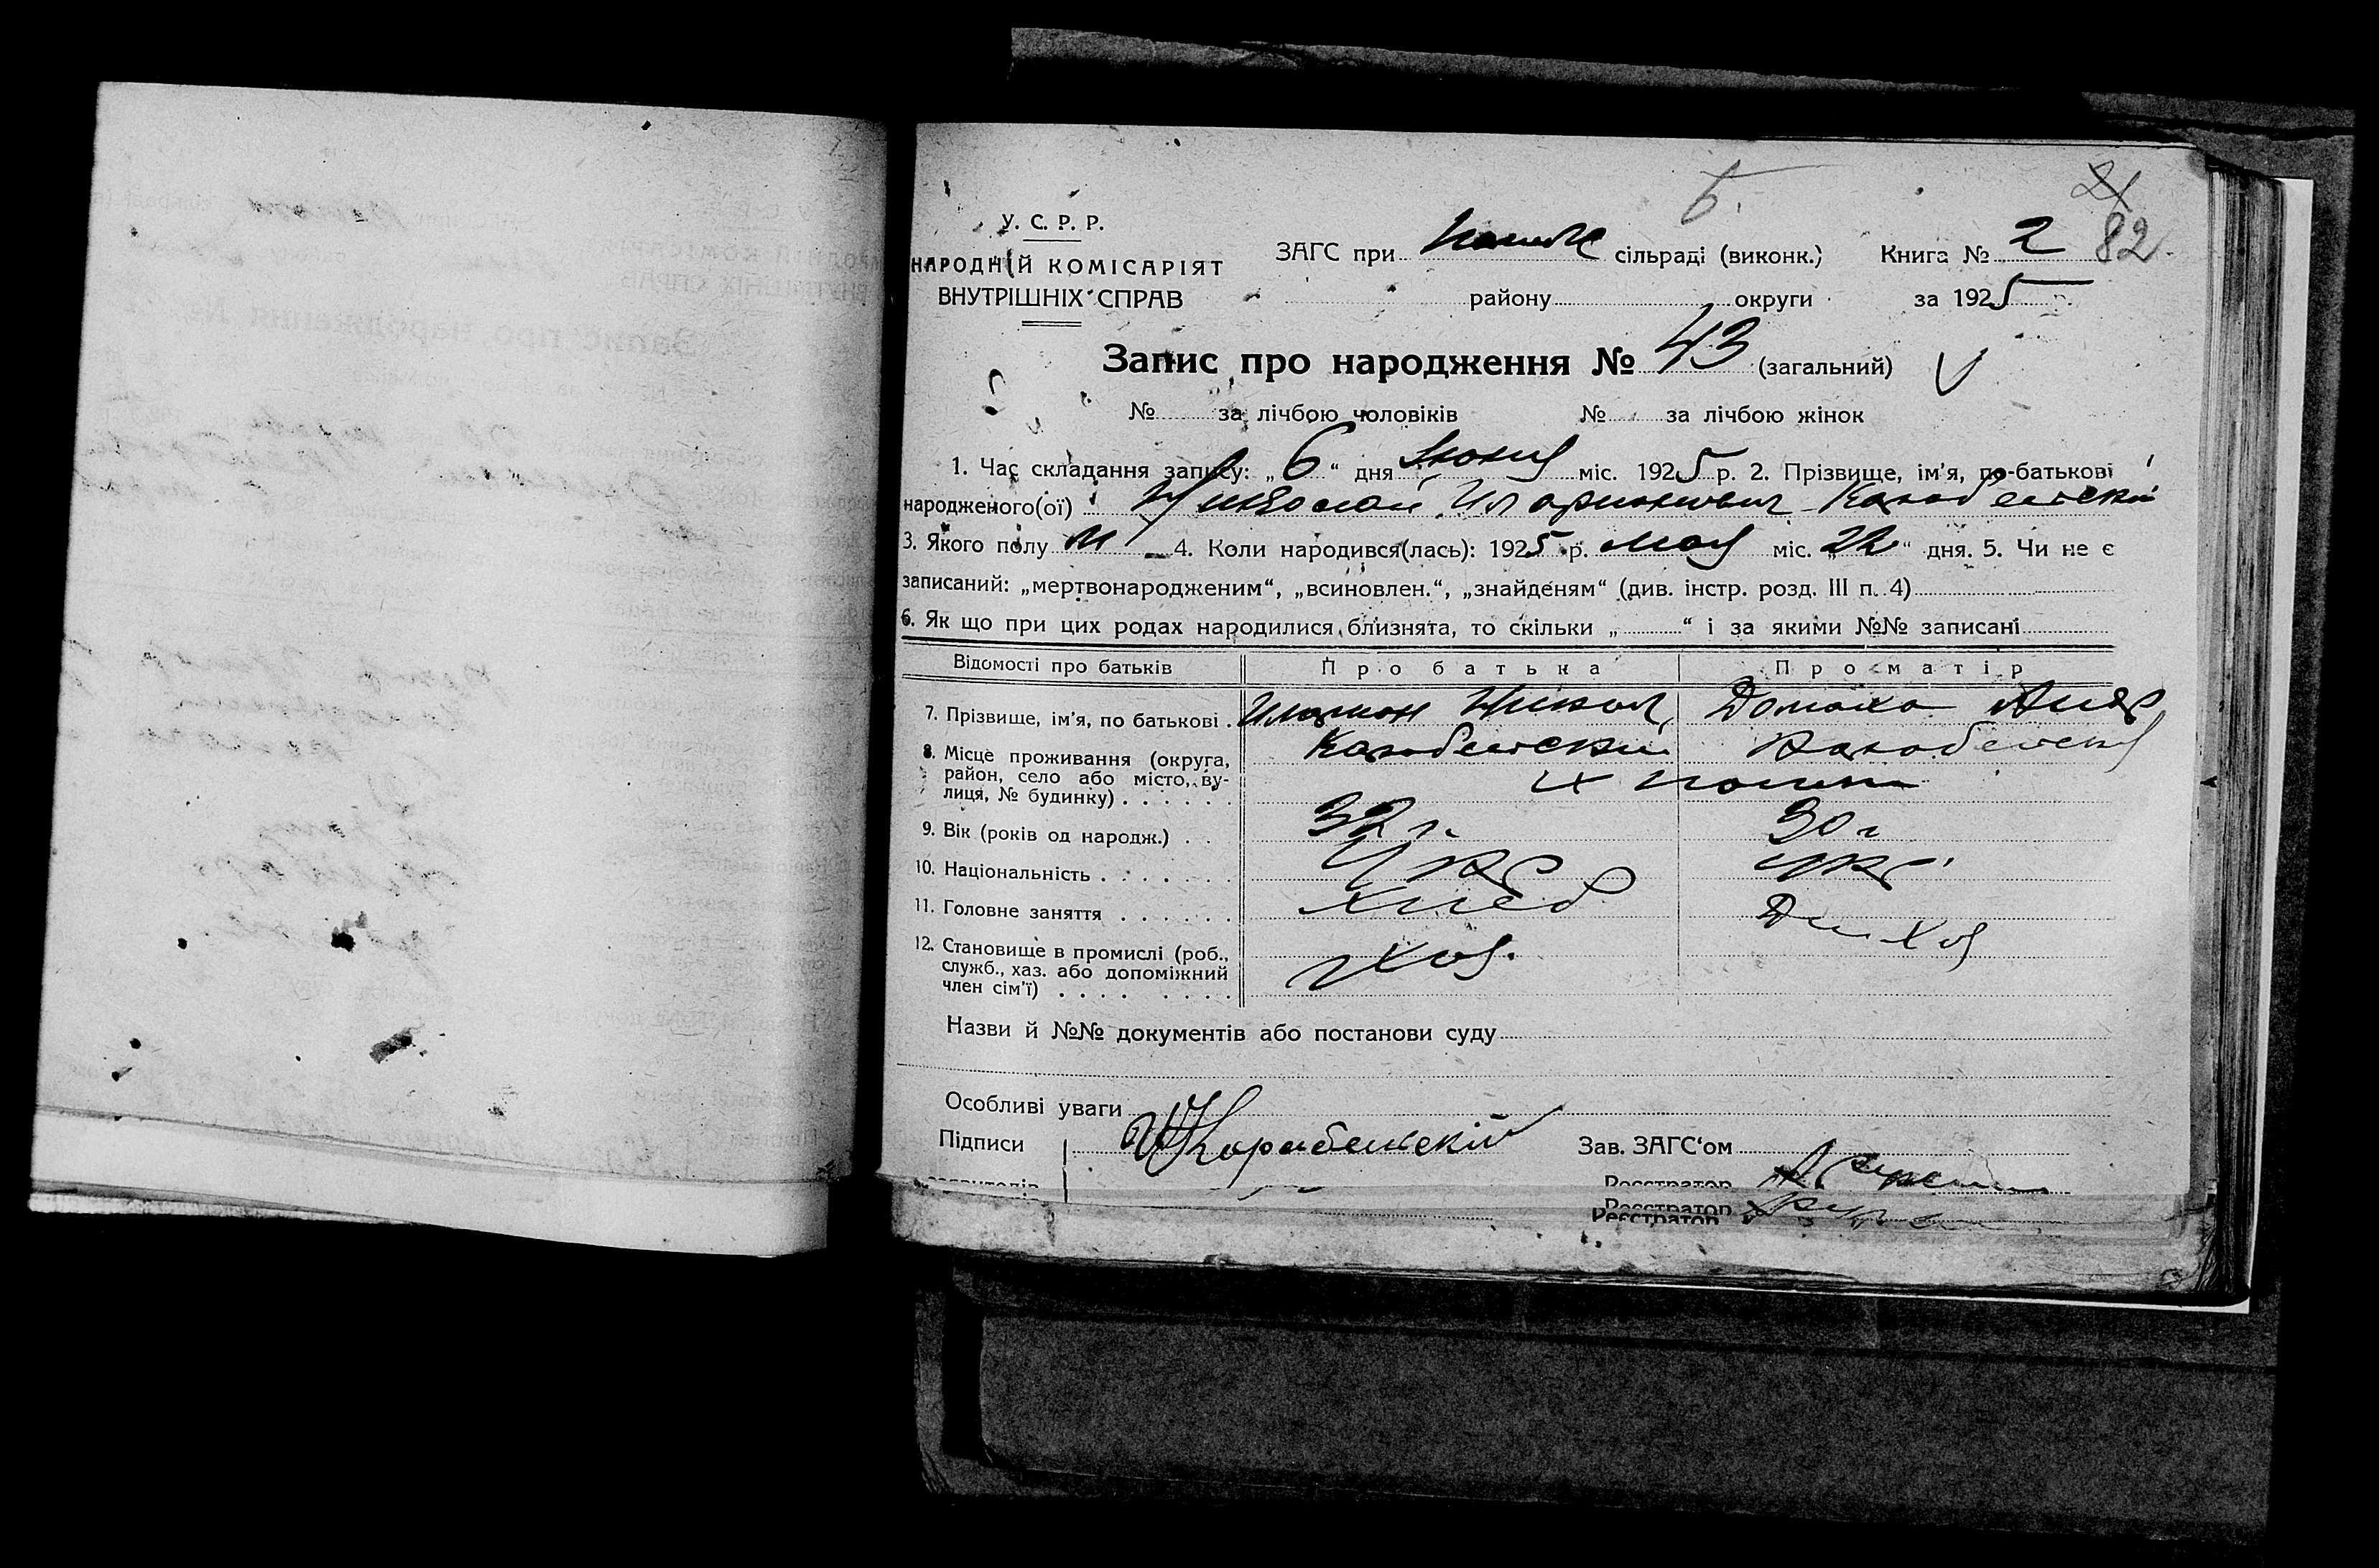 5.
21
82
У. С. Р. Р.
НАРОДНІЙ КОМІСАРІЯТ
ВНУТРІШНІХ СПРАВ
ЗАГС при сільраді (виконк.) Книга № 2
району округи за 1925
Запис про народження № 43 (загальний)
№ за лічбою чоловіків № за лічбою жінок
1. Час складання запису: „6“ дня Июня міс. 1925 р. 2. Прізвище, ім'я, по-батькові
народженого(ої) Николай Иларионович
3. Якого полу м 4. Коли народився(лась): 1925 р. мая міс. „22“ дня. 5. Чи не є
записаний: „мертвонародженим“, „всиновлен.“, „знайденям“ (див. інстр. розд. III п. 4)
6. Як що при цих родах народилися близнята, то скільки „ “ і за якими №№ записані
Відомості про батьків Про батька Про матір
7. Прізвище, ім'я, по батькові Иларион Никол. Домаха
8. Місце проживання (округа,
район, село або місто, ву-
лиця, № будинку)
9. Вік (років од народж.) 32 г. 30 г
10. Національність Укр Укр
11. Головне заняття Хлеб
12. Становище в промислі (роб.,
служб., хаз. або допоміжний
член сім'ї) Хоз.
Назви й №№ документів або постанови суду
Особливі уваги
Підписи Зав. ЗАГС'ом
Реєстратор
Реєстратор
Реєстратор